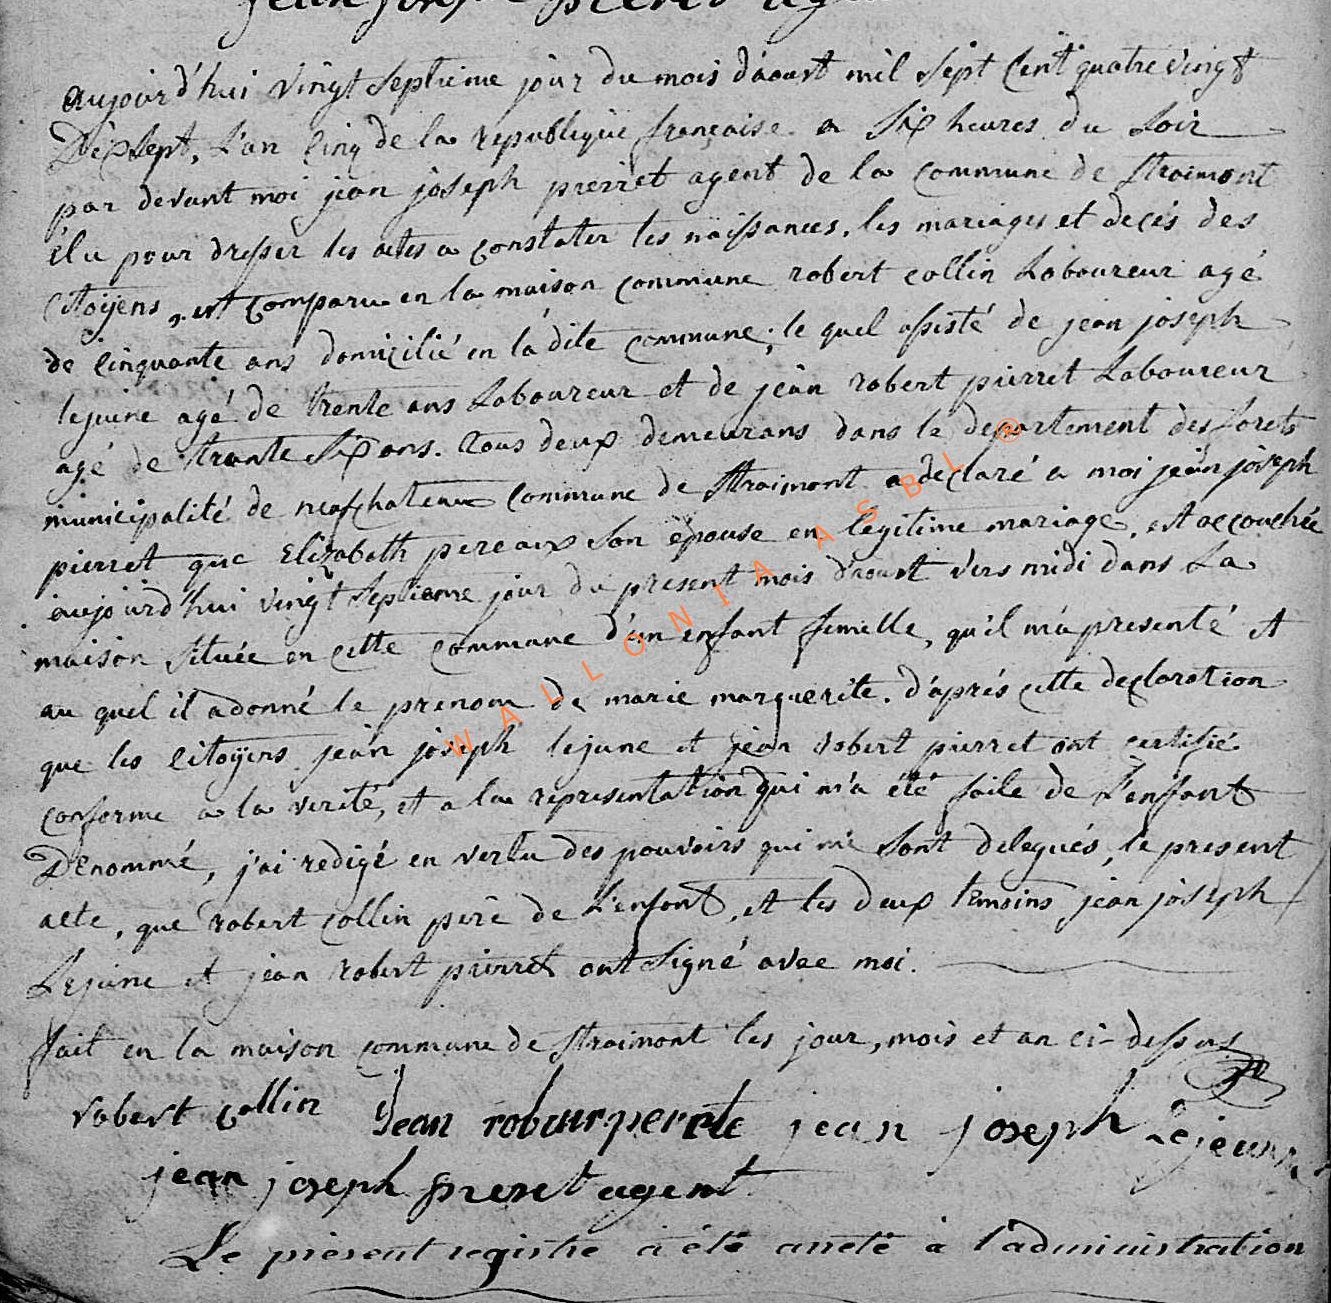 jean joseph pierret agent
aujourd'hui vingt septieme jour du mois d'aoust mil sept Cent quatre vingt
Dixsept, L'an Cinq de la republique française a Six heures du Soir
par devant moi jean joseph pierret agent de la commune de Straimont
élu pour dresser les actes a constater les naissances, les mariages et decés des
Citoÿens, est comparu en la maison commune robert collin Laboureur agé
de cinquante ans domicilié en la dite commune; le quel assisté de jean joseph
lejeune agé de trente ans Laboureur et de jean robert pierret Laboureur
agé de trante Six ans. tous deux demeurans dans le departement des forets
municipalité de neufchateau commune de Straimont a declaré a moi jean joseph
pierret que Elizabeth pereaux son épouse en legitime mariage, est accouchée
aujourd'hui vingt Septieme jour du present mois d'aoust vers midi dans La
maison située en cette commune d'un enfant femelle, qu'il m'a presenté et
au quel il a donné le prenom de marie marguerite. d'aprés cette declaration
que les citoÿens jean joseph lejune et jean robert pierret ont certifié
conforme a la verité, et a la representation qui m'a été faite de L'enfant
Denommé, j'ai redigé en vertu des pouvoirs qui me sont delegués, le present
acte, que robert collin pere de L'enfant, et les deux temoins jean joseph
Lejeune et jean robert pierret ont Signé avec moi.
fait en la maison commune de Straimont les jour, mois et an ci-dessus
robert collin jean robeur perrete jean joseph Lejeune
jean joseph pieret agent
Le présent registre a été arreté à l'administration
WALLONIA ASBL ®